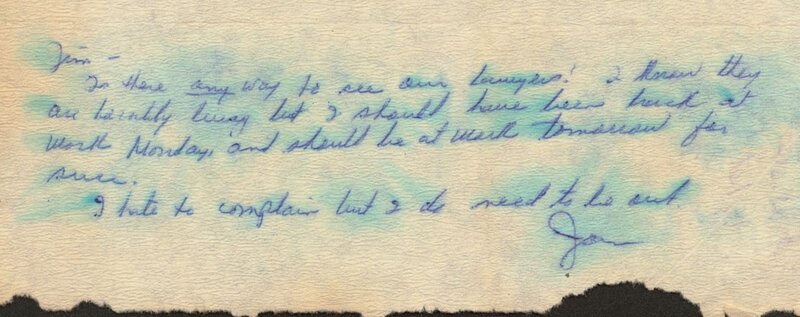 Jim -
Is there any way to see our lawyers? I know they
are terribly busy but I should have been back at
work Monday, and should be at work tomorrow for
sure.
I hate to complain but I do need to be out.